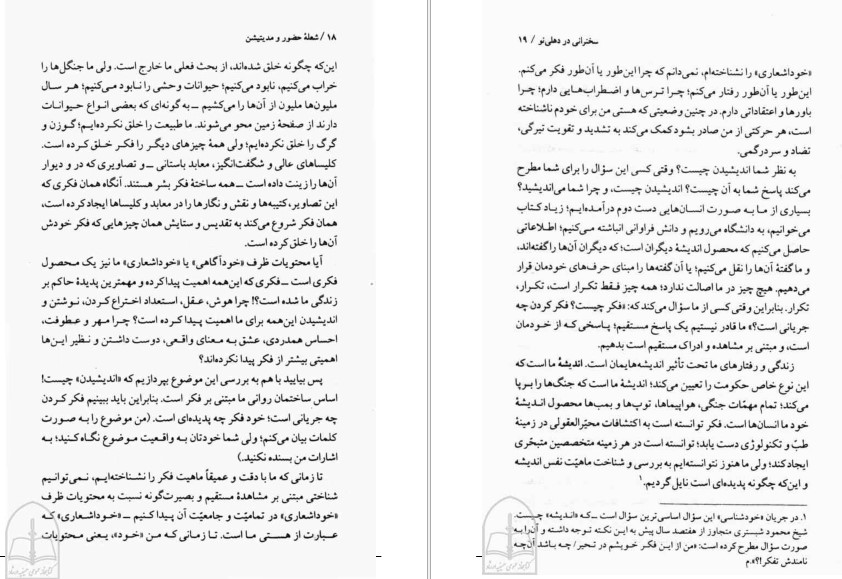 ۱۸ / شعلهٔ حضور و مدیتیشن
این‌که چگونه خلق شده‌اند، از بحث فعلی ما خارج است. ولی ما جنگل‌ها را
خراب می‌کنیم، نابود می‌کنیم؛ حیوانات وحشی را نابود می‌کنیم؛ هر سال
ملیون‌ها ملیون از آن‌ها را می‌کشیم ــ به گونه‌ای که بعضی انواع حیوانات
دارند از صفحهٔ زمین محو می‌شوند. ما طبیعت را خلق نکرده‌ایم؛ گوزن و
گرگ را خلق نکرده‌ایم؛ ولی همهٔ چیزهای دیگر را فکر خلق کرده است.
کلیساهای عالی و شگفت‌انگیز، معابد باستانی ــ و تصاویری که در و دیوار
آن‌ها را زینت داده است ــ همه ساختهٔ فکر بشر هستند. آنگاه همان فکری که
این تصاویر، کتیبه‌ها و نقش و نگارها را در معابد و کلیساها ایجاد کرده است،
همان فکر شروع می‌کند به تقدیس و ستایش همان چیزهایی که فکر خودش
آن‌ها را خلق کرده است.
آیا محتویات ظرف «خودآگاهی» یا «خوداشعاری» ما نیز یک محصول
فکری است ــ فکری که این‌همه اهمیت پیدا کرده و مهمترین پدیدهٔ حاکم بر
زندگی ما شده است؟! چرا هوش، عقل، استعداد اختراع کردن، نوشتن و
اندیشیدن این‌همه برای ما اهمیت پیدا کرده است؟ چرا مهر و عطوفت،
احساس همدردی، عشق به معنای واقعی، دوست داشتن و نظیر این‌ها
اهمیتی بیشتر از فکر پیدا نکرده‌اند؟
پس بیایید با هم به بررسی این موضوع بپردازیم که «اندیشیدن» چیست!
اساس ساختمان روانی ما مبتنی بر فکر است. بنابراین باید ببینیم فکر کردن
چه جریانی است؛ خود فکر چه پدیده‌ای است. (من موضوع را به صورت
کلمات بیان می‌کنم؛ ولی شما خودتان به واقعیت موضوع نگاه کنید؛ به
اشارات من بسنده نکنید.)
تا زمانی که ما با دقت و عمیقاً ماهیت فکر را نشناخته‌ایم، نمی‌توانیم
شناختی مبتنی بر مشاهدهٔ مستقیم و بصیرت‌گونه نسبت به محتویات ظرف
«خوداشعاری» در تمامیّت و جامعیّت آن پیدا کنیم ــ «خوداشعاری» که
عبارت از هستی ما است. تا زمانی که من «خود»، یعنی محتویات
سخنرانی در دهلی‌نو / ۱۹
«خوداشعاری» را نشناخته‌ام، نمی‌دانم که چرا این‌طور یا آن‌طور فکر می‌کنم.
این‌طور یا آن‌طور رفتار می‌کنم؛ چرا ترس‌ها و اضطراب‌هایی دارم؛ چرا
باورها و اعتقاداتی دارم. در چنین وضعیتی که هستی من برای خودم ناشناخته
است، هر حرکتی از من صادر بشود کمک می‌کند به تشدید و تقویت تیرگی،
تضاد و سردرگمی.
به نظر شما اندیشیدن چیست؟ وقتی کسی این سؤال را برای شما مطرح
می‌کند پاسخ شما به آن چیست؟ اندیشیدن چیست، و چرا شما می‌اندیشید؟
بسیاری از ما به صورت انسان‌هایی دست دوم درآمده‌ایم؛ زیاد کتاب
می‌خوانیم، به دانشگاه می‌رویم و دانش فراوانی انباشته می‌کنیم؛ اطلاعاتی
حاصل می‌کنیم که محصول اندیشهٔ دیگران است؛ که دیگران آن‌ها را گفته‌اند،
و ما گفتهٔ آن‌ها را نقل می‌کنیم؛ یا آن گفته‌ها را مبنای حرف‌های خودمان قرار
می‌دهیم. هیچ چیز در ما اصالت ندارد؛ همه چیز فقط تکرار است، تکرار،
تکرار. بنابراین وقتی کسی از ما سؤال می‌کند که: «فکر چیست؟ فکر کردن چه
جریانی است؟» ما قادر نیستیم یک پاسخ مستقیم؛ پاسخی که از خودمان
است، و مبتنی بر مشاهده و ادراک مستقیم است بدهیم.
زندگی و رفتارهای ما تحت تأثیر اندیشه‌هایمان است. اندیشهٔ ما است که
این نوع خاص حکومت را تعیین می‌کند؛ اندیشهٔ ما است که جنگ‌ها را برپا
می‌کند؛ تمام مهمّات جنگی، هواپیماها، توپ‌ها و بمب‌ها محصول اندیشهٔ
خود ما انسان‌ها است. فکر توانسته است به اکتشافات محیّرالعقولی در زمینهٔ
طبّ و تکنولوژی دست یابد؛ توانسته است در هر زمینه متخصصین متبحّری
ایجاد کند؛ ولی ما هنوز نتوانسته‌ایم به بررسی و شناخت ماهیّت نفس اندیشه
و این‌که چگونه پدیده‌ای است نایل گردیم.۱
۱. در جریان «خودشناسی» این سؤال اساسی‌ترین سؤال است ــ که «اندیشه» چیست.
شیخ محمود شبستری متجاوز از هفتصد سال پیش به این نکته توجه داشته و آن را به
صورت سؤال مطرح کرده است: «من از این فکر خویشم در تحیر/ چه باشد آن‌چه
نامندش تفکر!؟».م